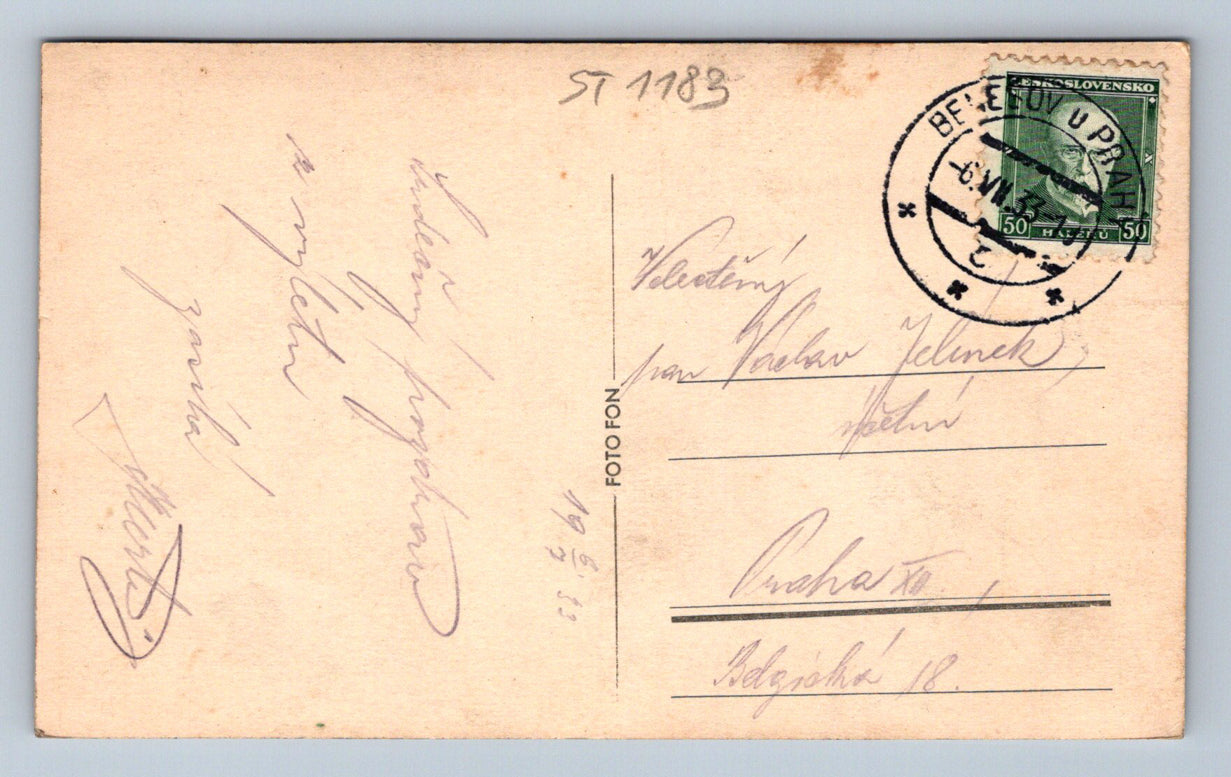 ST 1183
Srdečný pozdrav
z výletu
zasílá
19 6/7 33
FOTO FON
ČESKOSLOVENSKO
50 HALÉŘŮ 50
U PRAHY
-6.VII.33-
2
Velectěný
pan Václav Jelínek
účetní
Praha XII,
Belgická 18.